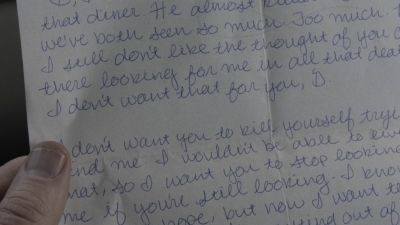 that diner. He almost
we've both seen so much. Too much.
I still don't like the thought of you
there looking for me in all that
I don't want that for you, D.
don't want you to kill yourself
find me. I wouldn't be able to
that, so I want you to stop looking
me if you're still looking. I know
hope, but now I want
out of